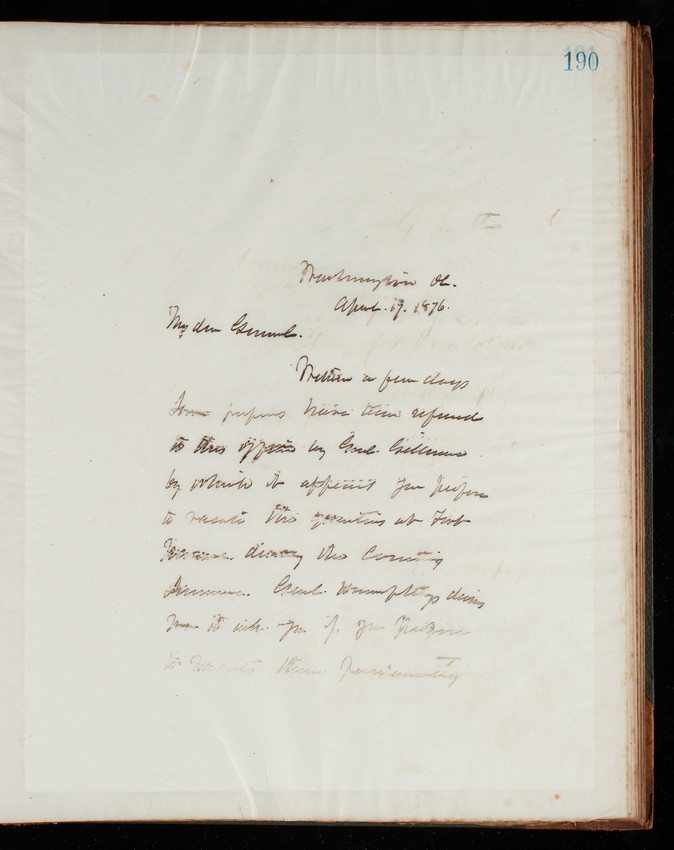 190
the
Washington DC.
April. 19. 1876.
My dear General.
Within a few days
Some papers have been referred
to this office by Genl. Gillmore
by which it appears you propose
to vacate the quarters at Fort
during the coming
Summer. Genl. Humphreys desires
me to ask you if you propose
to vacate them permanently